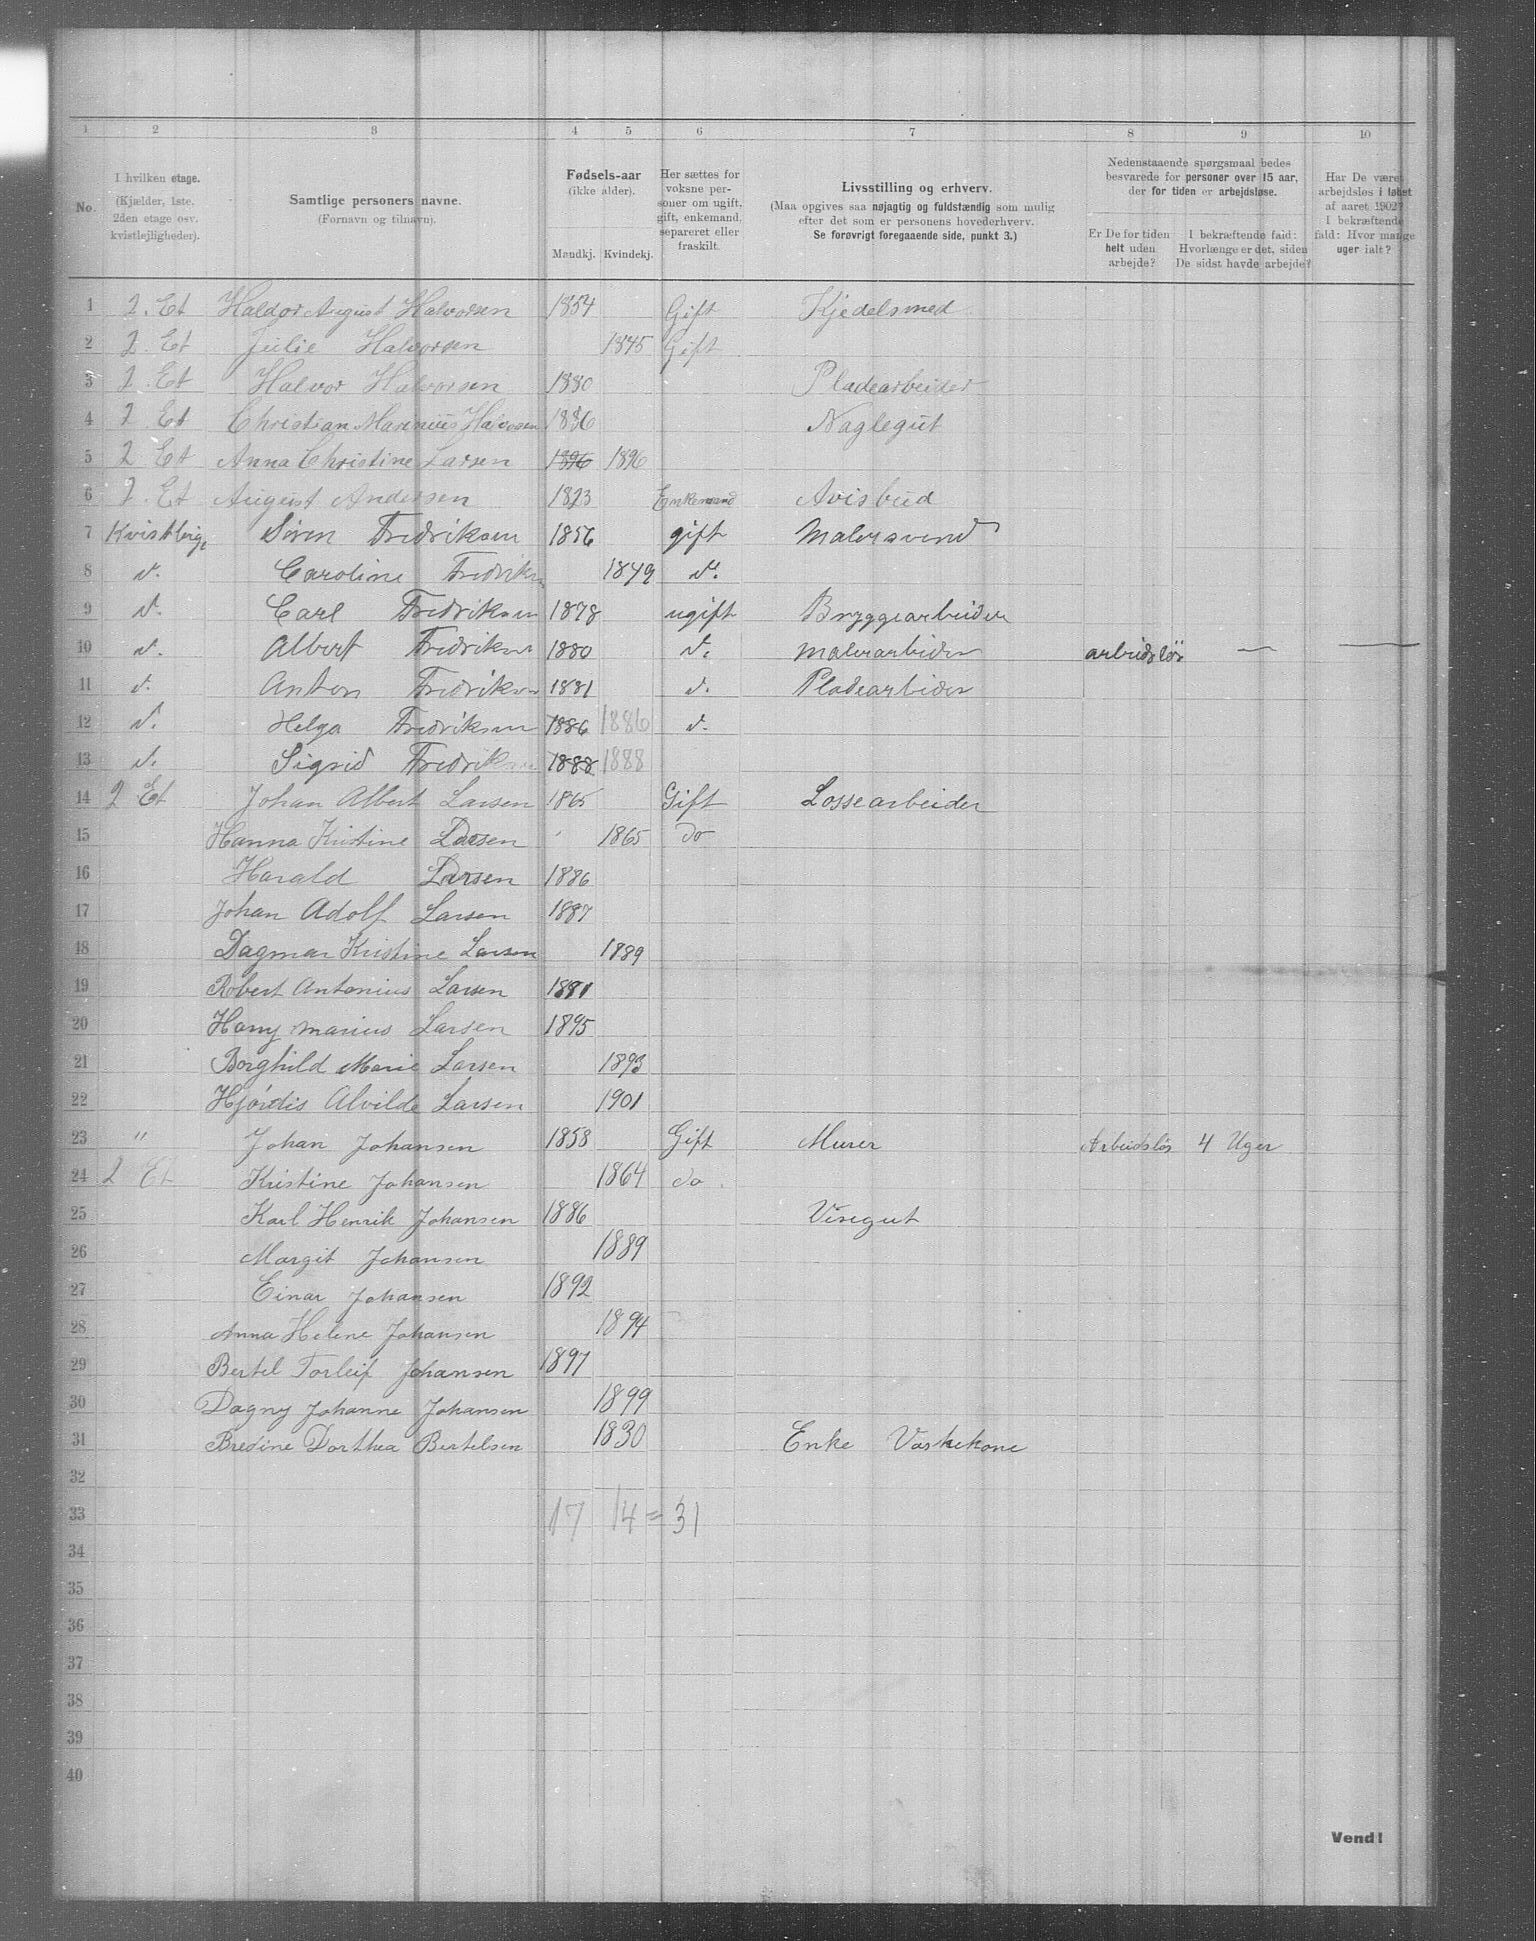 1 2 3 4 5 6 7 8 9 10
No. I hvilken etage. (Kjælder, 1ste. 2den etage osv. kvistlejligheder). Samtlige personers navne. (Fornavn og tilnavn). Fødsels-aar (ikke alder). Mandkj. Kvindekj. Her sættes for voksne personer om ugift, gift, enkemand, separeret eller fraskilt. Livsstilling og erhverv. (Maa opgives saa nøjagtig og fuldstændig som mulig efter det som er personens hovederhverv. Se forøvrigt foregaaende side, punkt 3.) Nedenstaaende spørgsmaal bedes besvarede for personer over 15 aar, der for tiden er arbejdsløse. Er De for tiden helt uden arbejde? I bekræftende fald: Hvorlænge er det, siden De sidst havde arbejde? Har De været arbejdsløs i løbet af aaret 1902? I bekræftende fald: Hvor mange uger ialt?
1 2. Et Haldor August Halvorsen 1854 Gift Kjedelsmed
2 2. Et Julie Halvorsen 1845 Gift
3 2. Et Halvor Halvorsen 1880 Pladearbeider
4 2 Et Christian Marinius Halvorsen 1886 Naglegut
5 2 Et Anna Christine Larsen 1896 1896
6 2. Et August Andersen 1823 Enkemand Avisbud
7 Søren Fredriksen 1856 gift Malersvend
8 d. Caroline Fredriksen 1849 d.
9 d. Carl Fredriksen 1878 ugift Bryggearbeider
10 d. Albert Fredriksen 1880 d. Malerarbider arbeidsløs — —
11 d. Anton Fredriksen 1881 d. Pladearbider
12 d. Helga Fredriksen 1886 1886 d.
13 d. Sigrid Fredriksen 1888 1888
14 2 Et Johan Albert Larsen 1865 Gift Lossearbeider
15 Hanna Kristine Larsen 1865 do
16 Harald Larsen 1886
17 Johan Adolf Larsen 1887
18 Dagmar Kristine Larsen 1889
19 Robert Antonius Larsen 1891
20 Harry Marius Larsen 1895
21 Borghild Marie Larsen 1893
22 Hjørdis Alvilde Larsen 1901
23 " Johan Johansen 1858 Gift Murer Arbeidsløs 4 Uger
24 2 Et Kristine Johansen 1864 do.
25 Karl Henrik Johansen 1886 Visegut
26 Margit Johansen 1889
27 Einar Johansen 1892
28 Anna Helene Johansen 1894
29 Bertel Torleif Johansen 1897
30 Dagny Johanne Johansen 1899
31 Bredine Dorthea Bertelsen 1830 Enke Vaskekone
32
33 17 14 = 31
34
35
36
37
38
39
40
Vend!